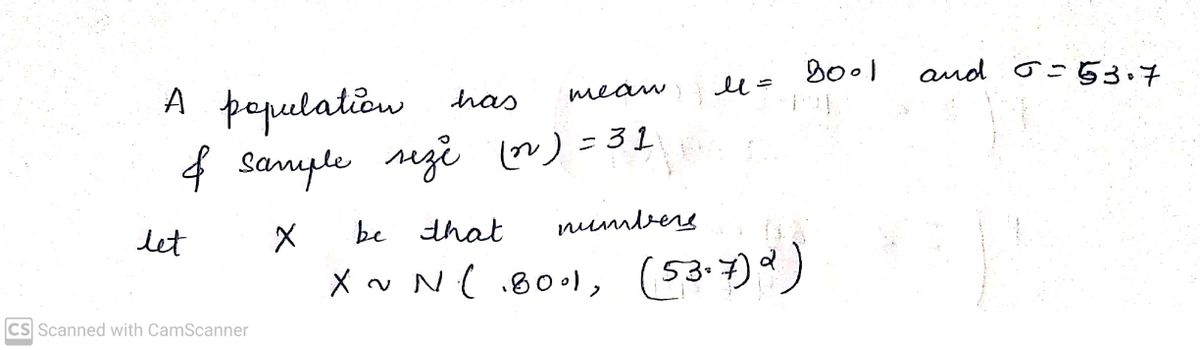 A population has mean μ = 80.1 and σ = 53.7
& sample size (n) = 31
let X be that numbers
X ~ N( 80.1, (53.7)²)
CS Scanned with CamScanner